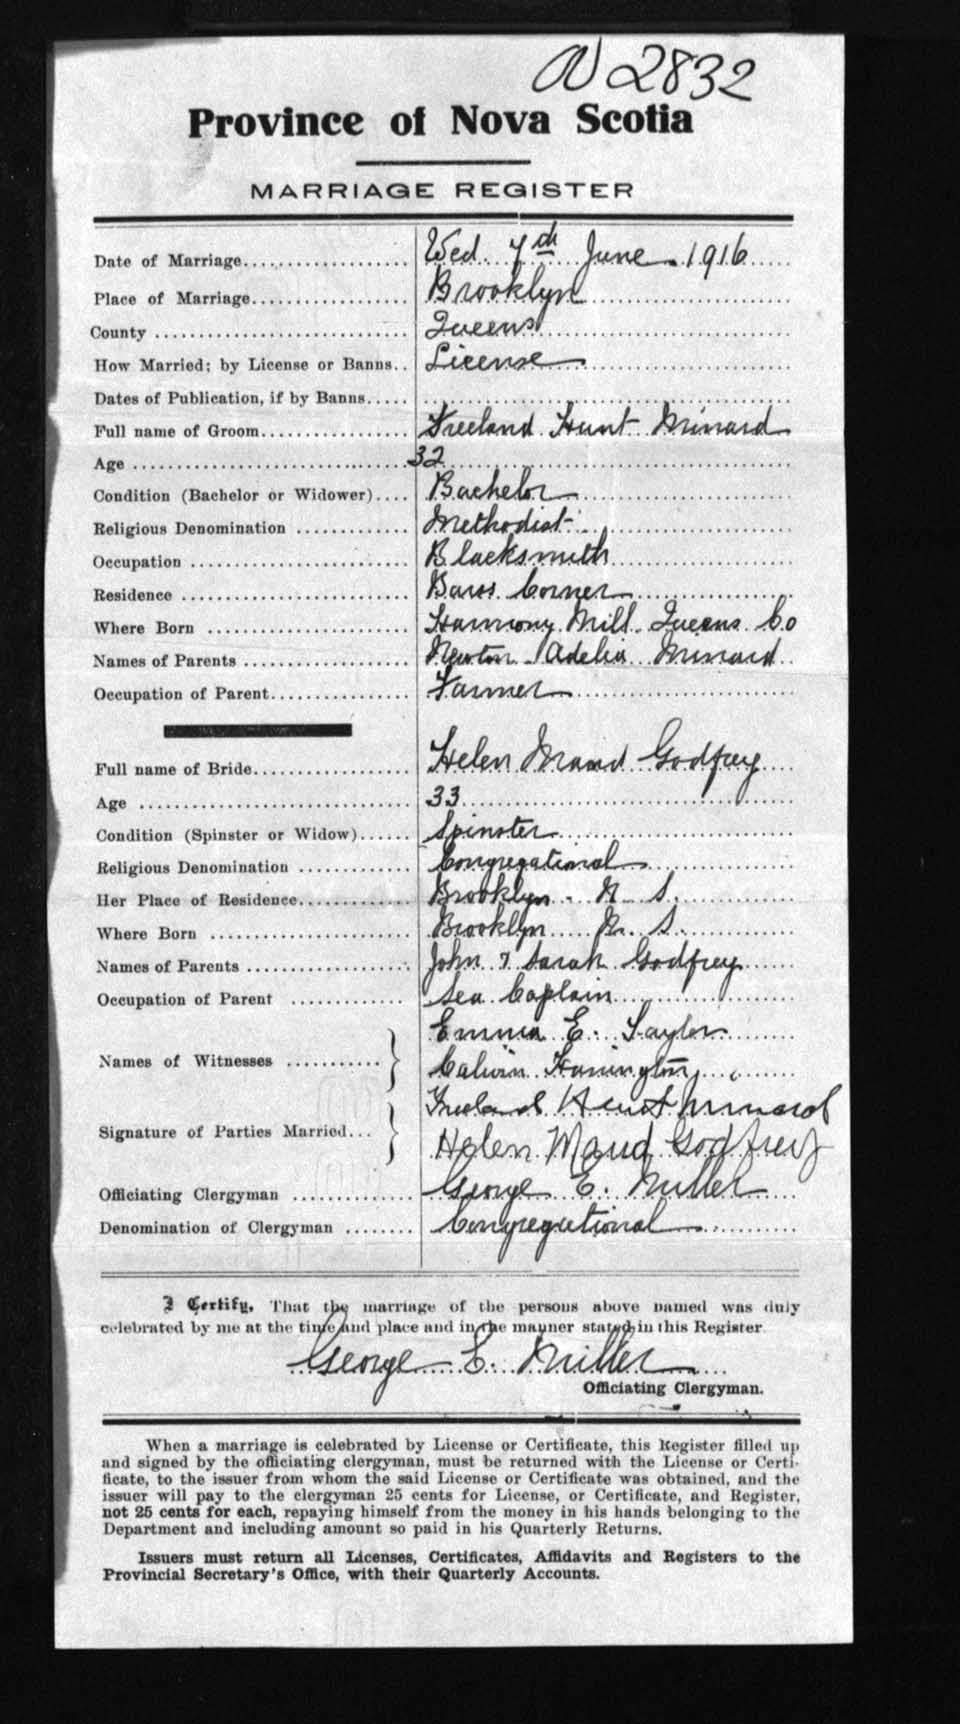 2832
Province of Nova Scotia
MARRIAGE REGISTER
Date of Marriage Wed. 7th June 1916
Place of Marriage Brooklyn
County Queens
How Married; by License or Banns License
Dates of Publication, if by Banns
Full name of Groom Freeland Hunt Minard
Age 32
Condition (Bachelor or Widower) Bachelor
Religious Denomination Methodist
Occupation Blacksmith
Residence Corner
Where Born Harmony Mill Queens Co
Names of Parents Newton Adelia Minard
Occupation of Parent Farmer
Full name of Bride Helen Maud Godfrey
Age 33
Condition (Spinster or Widow) Spinster
Religious Denomination Congregational
Her Place of Residence Brooklyn N. S.
Where Born Brooklyn N. S.
Names of Parents John & Sarah Godfrey
Occupation of Parent Sea Captain
Names of Witnesses Emma E. Taylor
Calvin
Signature of Parties Married Freeland Hunt Minard
Helen Maud Godfrey
Officiating Clergyman George E. Miller
Denomination of Clergyman Congregational
I Certify, That the marriage of the persons above named was duly
celebrated by me at the time and place and in the manner stated in this Register
George E. Miller
Officiating Clergyman.
When a marriage is celebrated by License or Certificate, this Register filled up
and signed by the officiating clergyman, must be returned with the License or Certi-
ficate, to the issuer from whom the said License or Certificate was obtained, and the
issuer will pay to the clergyman 25 cents for License, or Certificate, and Register,
not 25 cents for each, repaying himself from the money in his hands belonging to the
Department and including amount so paid in his Quarterly Returns.
Issuers must return all Licenses, Certificates, Affidavits and Registers to the
Provincial Secretary's Office, with their Quarterly Accounts.